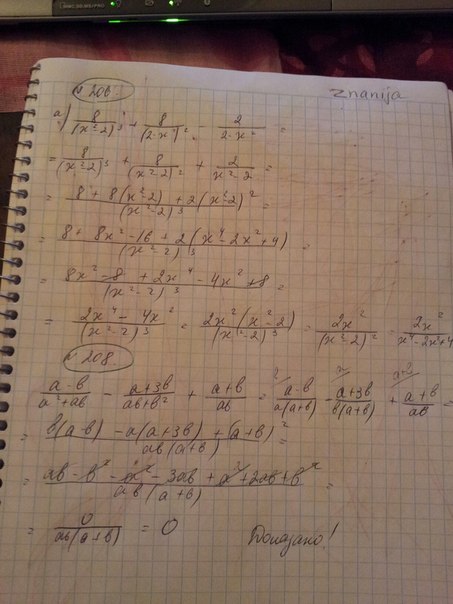 № 206. Znanija
а) 8/(x²-2)³ + 8/(2-x²)² - 2/(2-x²) =
= 8/(x²-2)³ + 8/(x²-2)² + 2/(x²-2) =
= (8 + 8(x²-2) + 2(x²-2)²)/(x²-2)³ =
= (8 + 8x² - 16 + 2(x⁴ - 2x² + 4))/(x²-2)³ =
= (8x² - 8 + 2x⁴ - 4x² + 8)/(x²-2)³ =
= (2x⁴ - 4x²)/(x²-2)³ = 2x²(x²-2)/(x²-2)³ = 2x²/(x²-2)² = 2x²/(x⁴-2x²+4)
№ 208.
(a-b)/(a²+ab) - (a+3b)/(ab+b²) + (a+b)/ab = (a-b)/(a(a+b)) - (a+3b)/(b(a+b)) + (a+b)/ab =
= (b(a-b) - a(a+3b) + (a+b)²)/(ab(a+b)) =
= (ab - b² - a² - 3ab + a² + 2ab + b²)/(ab(a+b)) =
= 0/(ab(a+b)) = 0 Доказано!